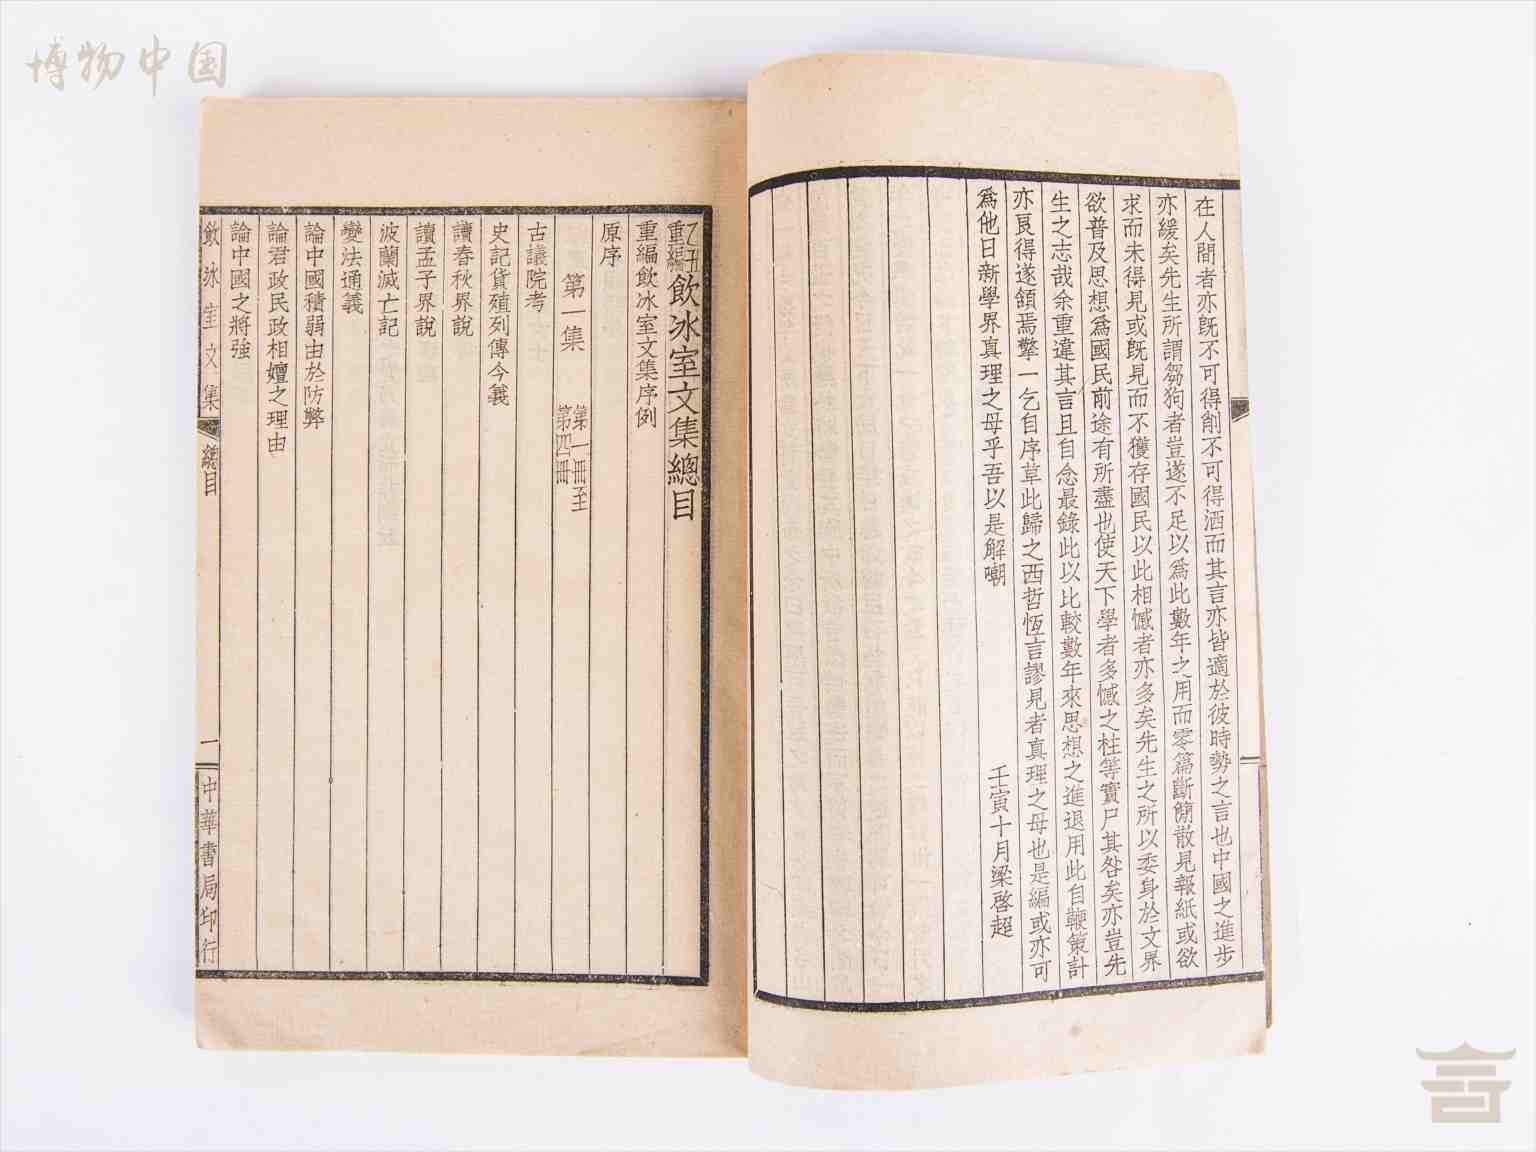 博物中国
在人間者亦既不可得削不可得洒而其言亦皆適於彼時勢之言也中國之進步
亦緩矣先生所謂芻狗者豈遂不足以爲此數年之用而零篇斷簡散見報紙或欲
求而未得見或既見而不獲存國民以此相憾者亦多矣先生之所以委身於文界
欲普及思想爲國民前途有所盡也使天下學者多憾之柱等實尸其咎矣亦豈先
生之志哉余重違其言且自念最錄此以比較數年來思想之進退用此自鞭策計
亦良得遂頷焉擎一乞自序草此歸之西哲恆言謬見者真理之母也是編或亦可
爲他日新學界真理之母乎吾以是解嘲
壬寅十月梁啓超
乙丑重編飲冰室文集總目
重編飲冰室文集序例
原序
第一集 第一冊至第四冊
古議院考
史記貨殖列傳今義
讀春秋界說
讀孟子界說
波蘭滅亡記
變法通義
論中國積弱由於防弊
論君政民政相嬗之理由
論中國之將強
飲冰室文集 總目 一 中華書局印行